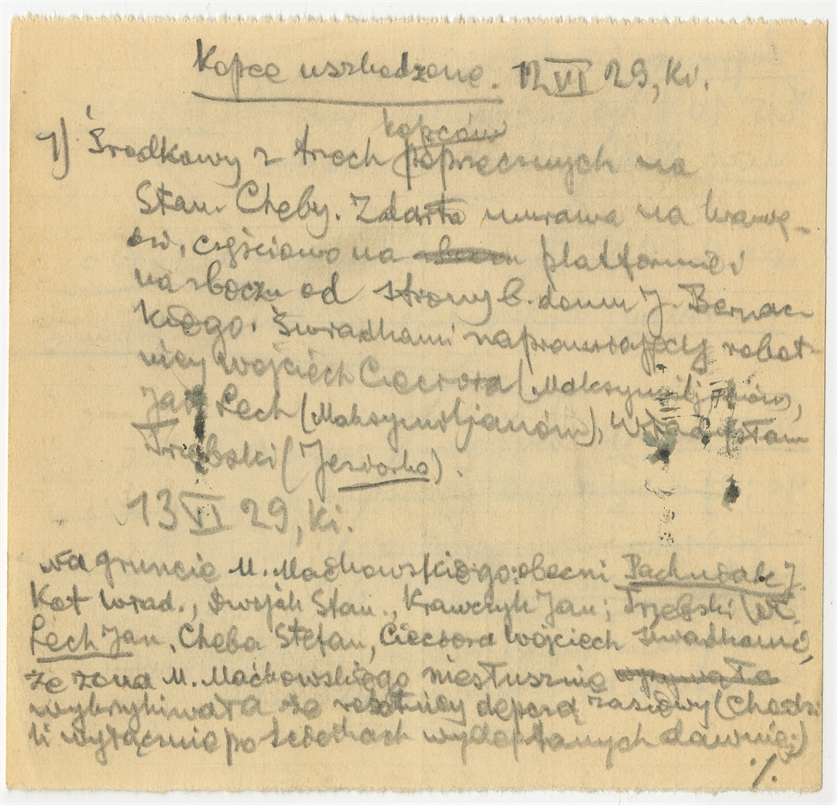 Kopce uszkodzone. 12 VI 29, Ki.
1) Środkowy z trzech kopców poprzecznych na
Stan. Cheby. Zdarta murawa na krawę-
dzi, częściowo na platformie i
na zboczu od strony b. domu J. Bernac-
kiego. Świadkami naprawiający robot-
nicy Wojciech Cieciora (Maksymiljanów),
Jan Lech (Maksymiljanów), Władysław
Trzebski (Jeziorko).
13 VI 29, Ki.
Na gruncie M. Maćkowskiego: obecni J.
Kot Wład., Dwojak Stan., Krawczyk Jan; Trzebski Wł.
Lech Jan, Cheba Stefan, Cieciora Wojciech świadkami,
że żona M. Maćkowskiego niesłusznie
wykrzykiwała że robotnicy depcą zasiewy (chodzi-
li wyłącznie po ścieżkach wydeptanych dawniej)
./.